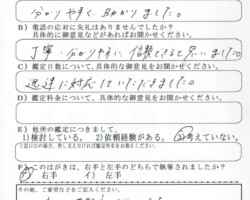 分かりやすく、助かりました。
B）電話の応対に失礼はありませんでしたか？
具体的に御意見などがあればお聞かせください。
丁寧・分かりやすい、信頼できると思いました
C）鑑定日数について、具体的な御意見をお聞かせください。
迅速に対応していただきました。
D）鑑定料金について、具体的な御意見をお聞かせください。
E）他所の鑑定につきまして。
1)検討している。 2)依頼経験がある。 3)考えていない。
F）このはがきは、右手と左手のどちらで執筆されましたか？
ア）右手 イ）左手
その他、ご要望などをご記入ください。